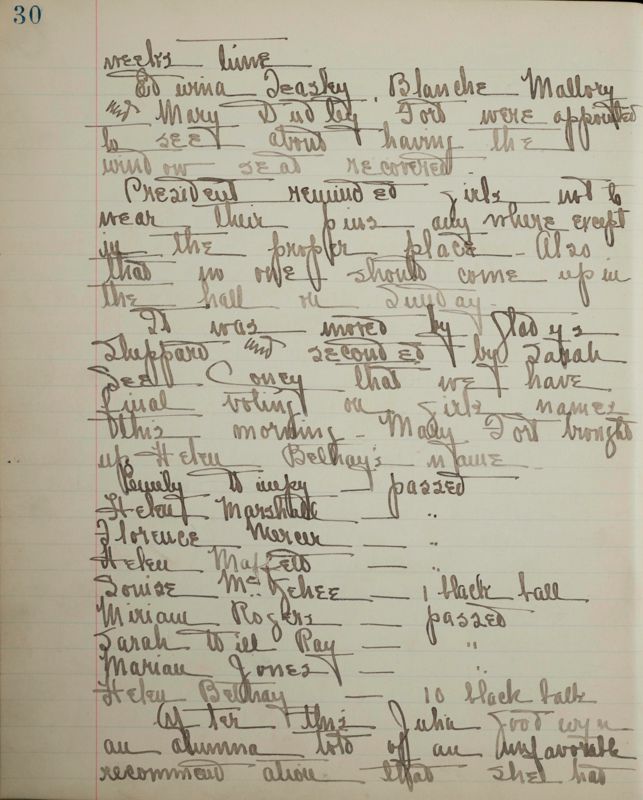 30
weeks time
Edwina Teasley, Blanche Mallory
and Mary Dudley Fort were appointed
to see about having the
window seat recovered.
President reminded girls not to
wear their pins any where except
in the proper place. Also
that no one should come up in
the hall on Sunday.
It was moved by Gladys
Sheppard and seconded by Sarah
Lee Coney that we have
final voting on girls names
this morning. Mary Fort brought
up Helen Belhay's name.
Quimpy — passed
Helen Marshall — "
Florence Mercer — "
Helen — "
Louise McGehee — 1 black ball
Miriam Rogers — passed
Sarah Will Ray — "
Marian Jones — "
Helen Belhay — 10 black balls
After this Julia Goodwyn
an alumna told of an unfavorable
recommendation that she had